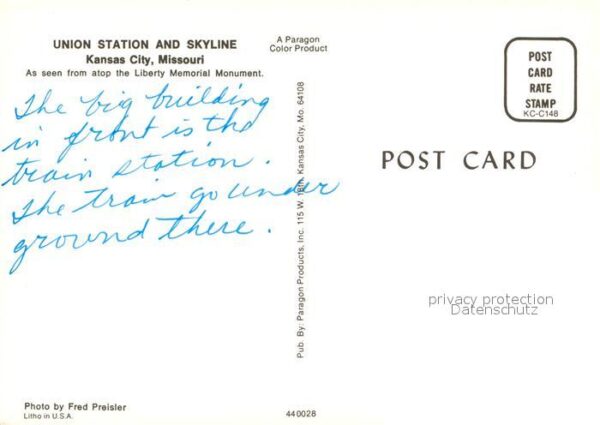 UNION STATION AND SKYLINE
Kansas City, Missouri
As seen from atop the Liberty Memorial Monument.
A Paragon
Color Product
The big building
in front is the
train station.
The train go under
ground there.
Pub. By: Paragon Products, Inc. 115 W. 18th, Kansas City, Mo. 64108
POST
CARD
RATE
STAMP
KC-C148
POST CARD
privacy protection
Datenschutz
Photo by Fred Preisler
Litho in U.S.A.
440028